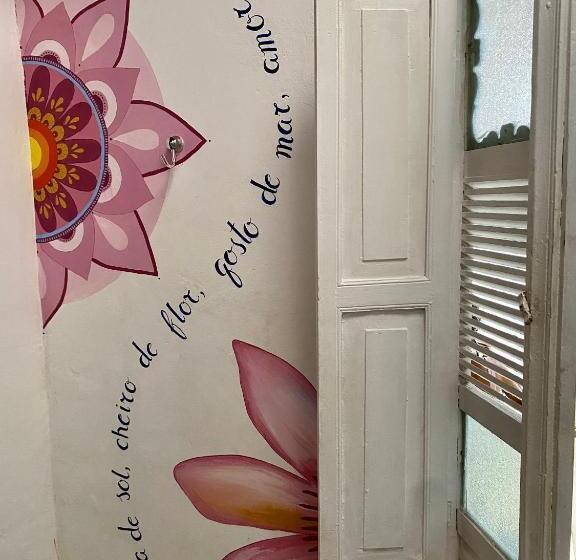 a de sol, cheiro de flor, gosto de mar, amor